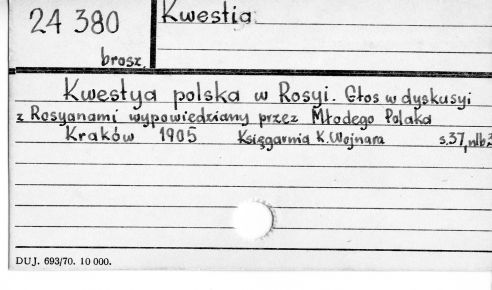 24 380
brosz.
Kwestia
Kwestya polska w Rosyi. Głos w dyskusyi
z Rosyanami wypowiedziany przez Młodego Polaka
Kraków 1905 Księgarnia K. Wojnara s. 37, nlb 2
DUJ. 693/70. 10 000.